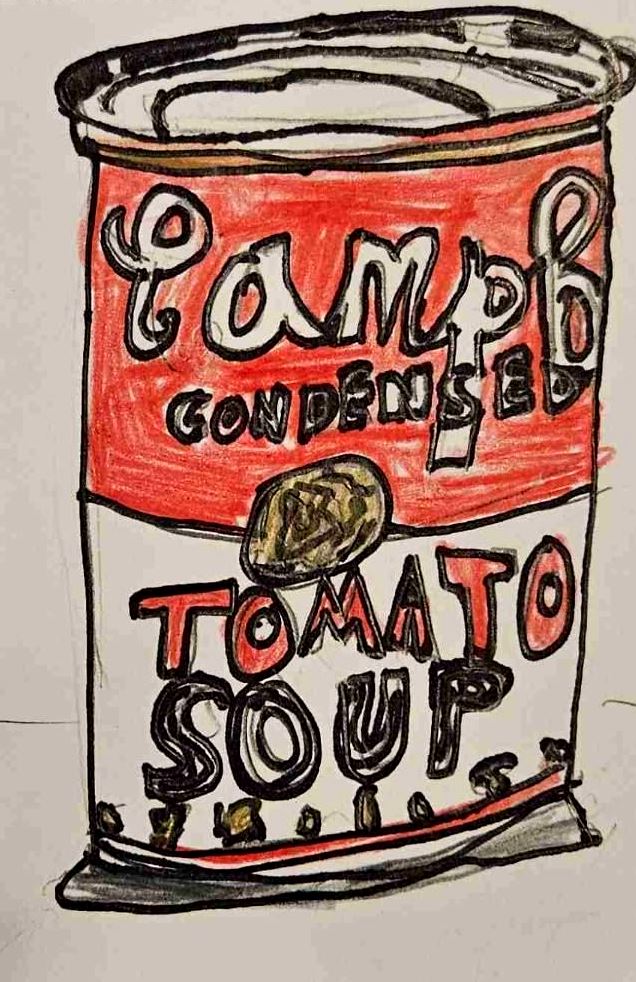 Campb
CONDENSED
TOMATO
SOUP